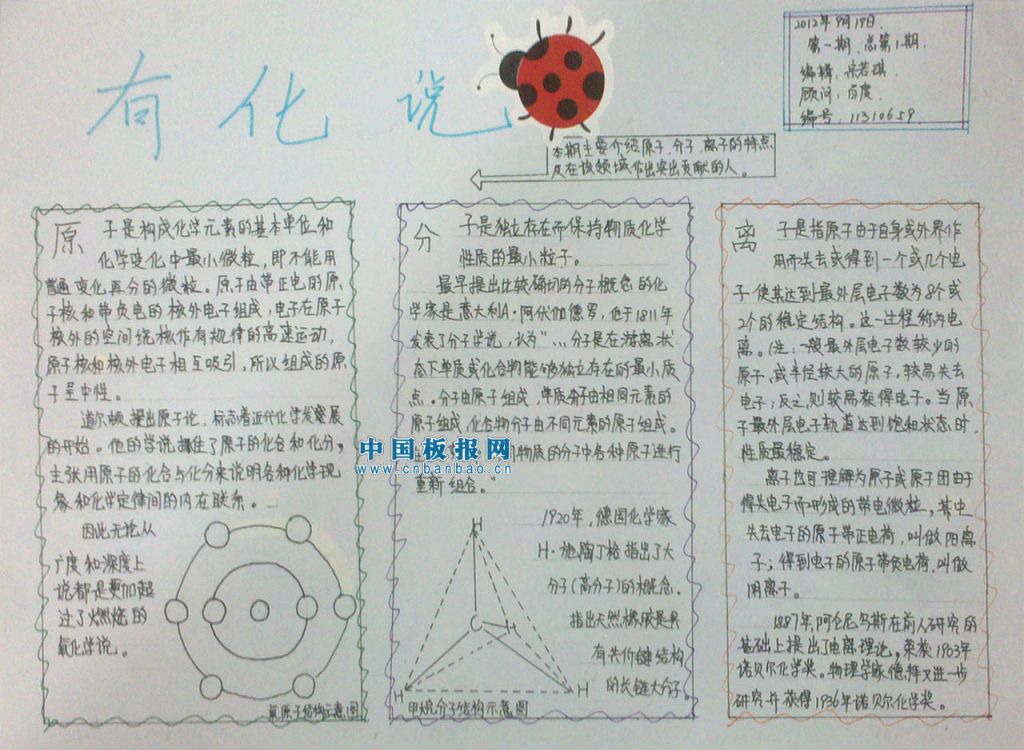 有化说
2012年9月19日.
第一期.总第1期.
编辑:
顾问:百度.
编号:11310659.
本期主要介绍原子、分子、离子的特点
及在该领域作出突出贡献的人。
原 子是构成化学元素的基本单位和
化学变化中最小微粒,即不能用
普通变化再分的微粒。原子由带正电的原
子核和带负电的核外电子组成,电子在原子
核外的空间绕核作有规律的高速运动,
原子核和核外电子相互吸引,所以组成的原
子呈中性。
道尔顿提出原子论,标志着近代化学发展
的开始。他的学说抓住了原子的化合和化分,
主张用原子的化合与化分来说明各种化学现
象和化学定律间的内在联系。
因此无论从
广度和深度上
说都是更加超
过了燃烧的
氧化学说。
原子结构示意图
分 子是独立存在而保持物质化学
性质的最小粒子。
最早提出比较确切的分子概念的化
学家是意大利A·阿伏伽德罗,他于1811年
发表了分子学说,认为“…分子是在游离状
态下单质或化合物能够独立存在的最小质
点。分子由原子组成,单质分子由相同元素的
原子组成,化合物分子由不同元素的原子组成。
物质的分子中各种原子进行
重新组合。”
1920年,德国化学家
H·施陶丁格指出了大
分子(高分子)的概念.
指出天然橡胶是具
有共价键结构
的长链大分子.
H
C
H
H
H
甲烷分子结构示意图
离 子是指原子由于自身或外界作
用而失去或得到一个或几个电
子使其达到最外层电子数为8个或
2个的稳定结构。这一过程称为电
离。(注:一般最外层电子数较少的
原子,或半径较大的原子,较易失去
电子,反之,则较易获得电子。当原
子最外层电子轨道达到饱和状态时,
性质最稳定。
离子也可理解为原子或原子团由于
得失电子而形成的带电微粒,其中
失去电子的原子带正电荷,叫做阳离
子;得到电子的原子带负电荷,叫做
用离子。
1887年,阿仑尼乌斯在前人研究的
基础上提出了电离理论,荣获1903年
诺贝尔化学奖。物理学家德拜又进一步
研究并获得1936年诺贝尔化学奖。
中国板报网
www.cnbanbao.cn